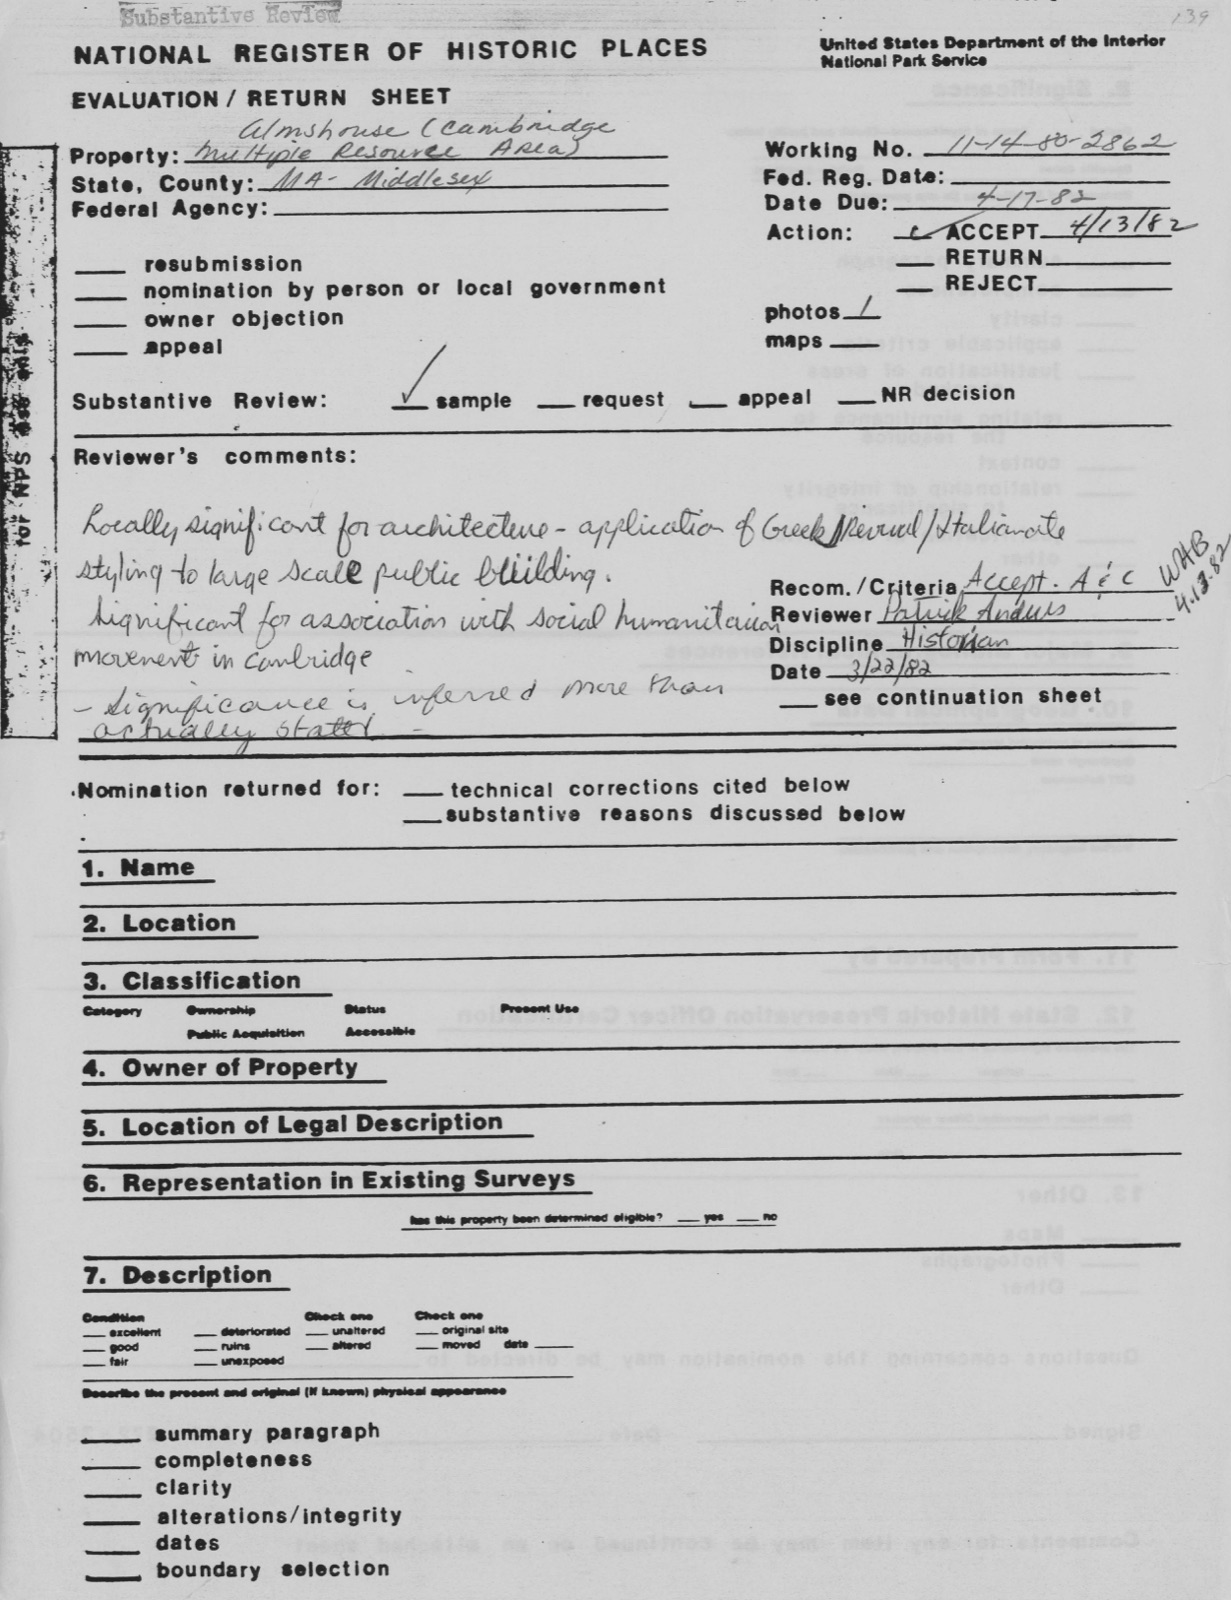 Substantive Review
139
NATIONAL REGISTER OF HISTORIC PLACES
United States Department of the Interior
National Park Service
EVALUATION / RETURN SHEET
Almshouse (Cambridge
Property: Multiple Resource Area)
State, County: MA- Middlesex
Federal Agency:
Working No. 11-14-80-2862
Fed. Reg. Date:
Date Due: 4-17-82
Action: ACCEPT 4/13/82
RETURN
REJECT
resubmission
nomination by person or local government
owner objection
appeal
photos 1
maps
Substantive Review: ✓ sample request appeal NR decision
for NPS use only
Reviewer's comments:
Locally significant for architecture - application of Greek Revival/Italianate
styling to large scale public building.
Significant for association with social humanitarian
movement in Cambridge
- Significance is inferred more than
actually stated -
Recom./Criteria Accept. A & C
Reviewer Patrick Andrus
Discipline Historian
Date 3/22/82
see continuation sheet
WHB
4.13.82
Nomination returned for: technical corrections cited below
substantive reasons discussed below
1. Name
2. Location
3. Classification
Category Ownership Status Present Use
Public Acquisition Accessible
4. Owner of Property
5. Location of Legal Description
6. Representation in Existing Surveys
has this property been determined eligible? yes no
7. Description
Condition Check one Check one
excellent deteriorated unaltered original site
good ruins altered moved date
fair unexposed
Describe the present and original (if known) physical appearance
summary paragraph
completeness
clarity
alterations/integrity
dates
boundary selection